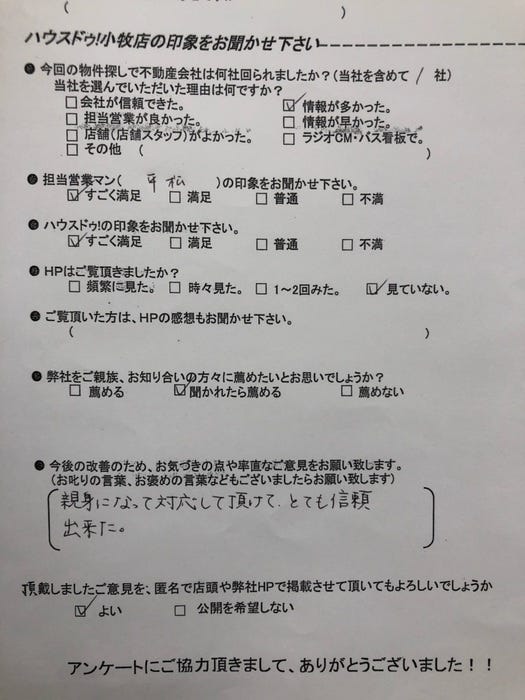 ( )
ハウスドゥ!小牧店の印象をお聞かせ下さい
● 今回の物件探しで不動産会社は何社回られましたか？(当社を含めて / 社)
当社を選んでいただいた理由は何ですか？
□ 会社が信頼できた。 ☑ 情報が多かった。
□ 担当営業が良かった。 □ 情報が早かった。
□ 店舗(店舗スタッフ)がよかった。 □ ラジオCM・バス看板で。
□ その他 ( )
● 担当営業マン( 平松 )の印象をお聞かせ下さい。
☑ すごく満足 □ 満足 □ 普通 □ 不満
● ハウスドゥ!の印象をお聞かせ下さい。
☑ すごく満足 □ 満足 □ 普通 □ 不満
● HPはご覧頂きましたか？
□ 頻繁に見た。 □ 時々見た。 □ 1～2回みた。 ☑ 見ていない。
● ご覧頂いた方は、HPの感想もお聞かせ下さい。
( )
● 弊社をご親族、お知り合いの方々に薦めたいとお思いでしょうか？
□ 薦める ☑ 聞かれたら薦める □ 薦めない
● 今後の改善のため、お気づきの点や率直なご意見をお願い致します。
(お叱りの言葉、お褒めの言葉などもございましたらお願い致します)
親身になって対応して頂けて、とても信頼
出来た。
頂戴しましたご意見を、匿名で店頭や弊社HPで掲載させて頂いてもよろしいでしょうか
☑ よい □ 公開を希望しない
アンケートにご協力頂きまして、ありがとうございました！！